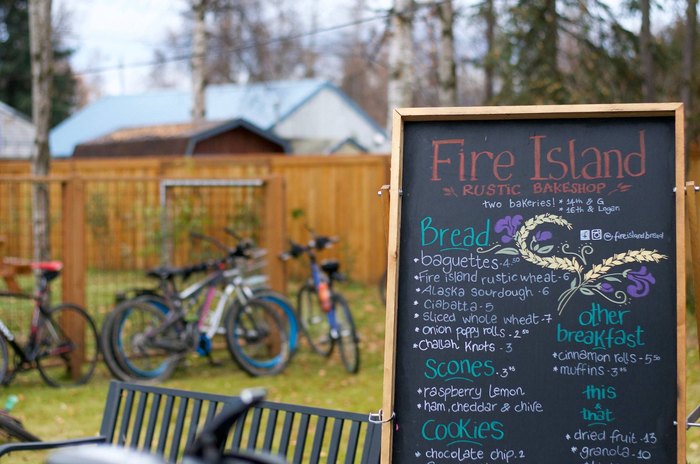 Fire Island
RUSTIC BAKESHOP
two bakeries! * 14th & G
* 16th & Logan
@fireislandbread
Bread
* baguettes - 4.50
* Fire island rustic wheat - 6
* Alaska sourdough - 6
* Ciabatta - 5
* Sliced whole wheat - 7
* onion poppy rolls - 2.50
* Challah Knots - 3
Scones - 3.95
* raspberry lemon
* ham, cheddar & chive
Cookies
* chocolate chip . 2
other
breakfast
* cinnamon rolls - 5.50
* muffins - 3.95
this
& that
* dried fruit - 13
* granola - 10